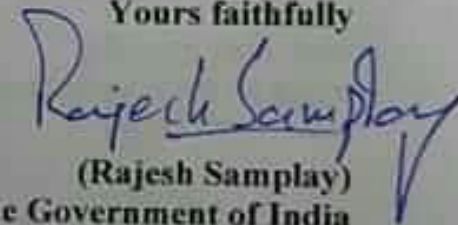 Yours faithfully
Rajesh Samplay
(Rajesh Samplay)
e Government of India